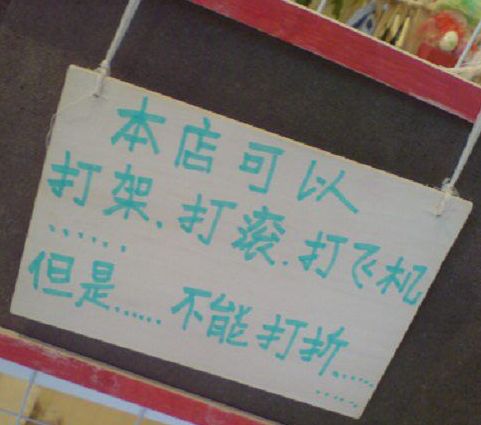 本店可以
打架、打滚、打飞机
……
但是……不能打折……
……